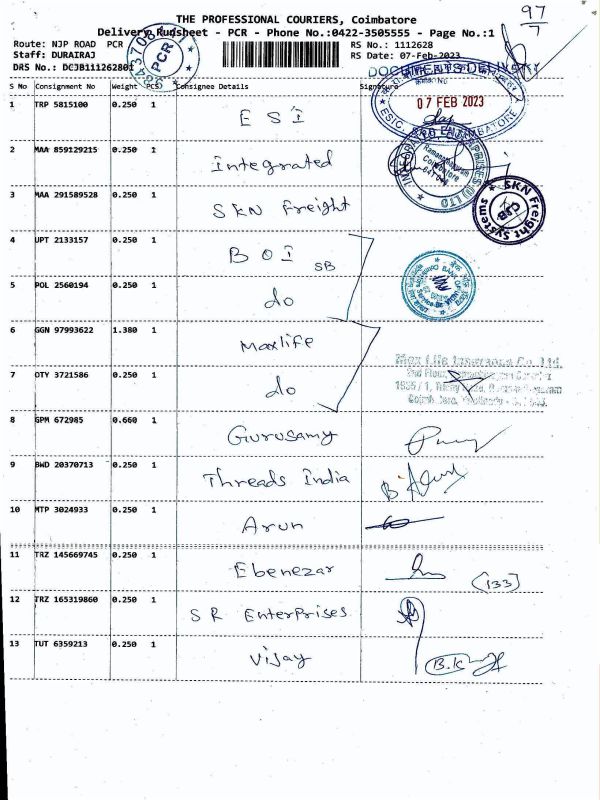 97/7
THE PROFESSIONAL COURIERS, Coimbatore
Delivery Runsheet - PCR - Phone No.:0422-3505555 - Page No.:1
Route: NJP ROAD PCR
Staff: DURAIRAJ
DRS No.: DCJB111262801
PCR
RS No.: 1112628
RS Date: 07-Feb-2023
S No Consignment No Weight PCS Consignee Details Signature
07 FEB 2023
1 TRP 5815100 0.250 1 ESI
2 MAA 859129215 0.250 1 Integrated
Ramanathapuram
Coimbatore
3 MAA 291589528 0.250 1 SKN Freight
SKN Freight Systems
CJB
4 UPT 2133157 0.250 1 BOI SB
5 POL 2560194 0.250 1 do
6 GGN 97993622 1.380 1 Maxlife
Max Life Insurance Co. Ltd.
2nd Floor,
7 OTY 3721586 0.250 1 do
8 GPM 672985 0.660 1 Gurusamy
9 BWD 20370713 0.250 1 Threads India
10 MTP 3024933 0.250 1 Arun
11 TRZ 145669745 0.250 1 Ebenezar (133)
12 TRZ 165319860 0.250 1 SR Enterprises
13 TUT 6359213 0.250 1 Vijay